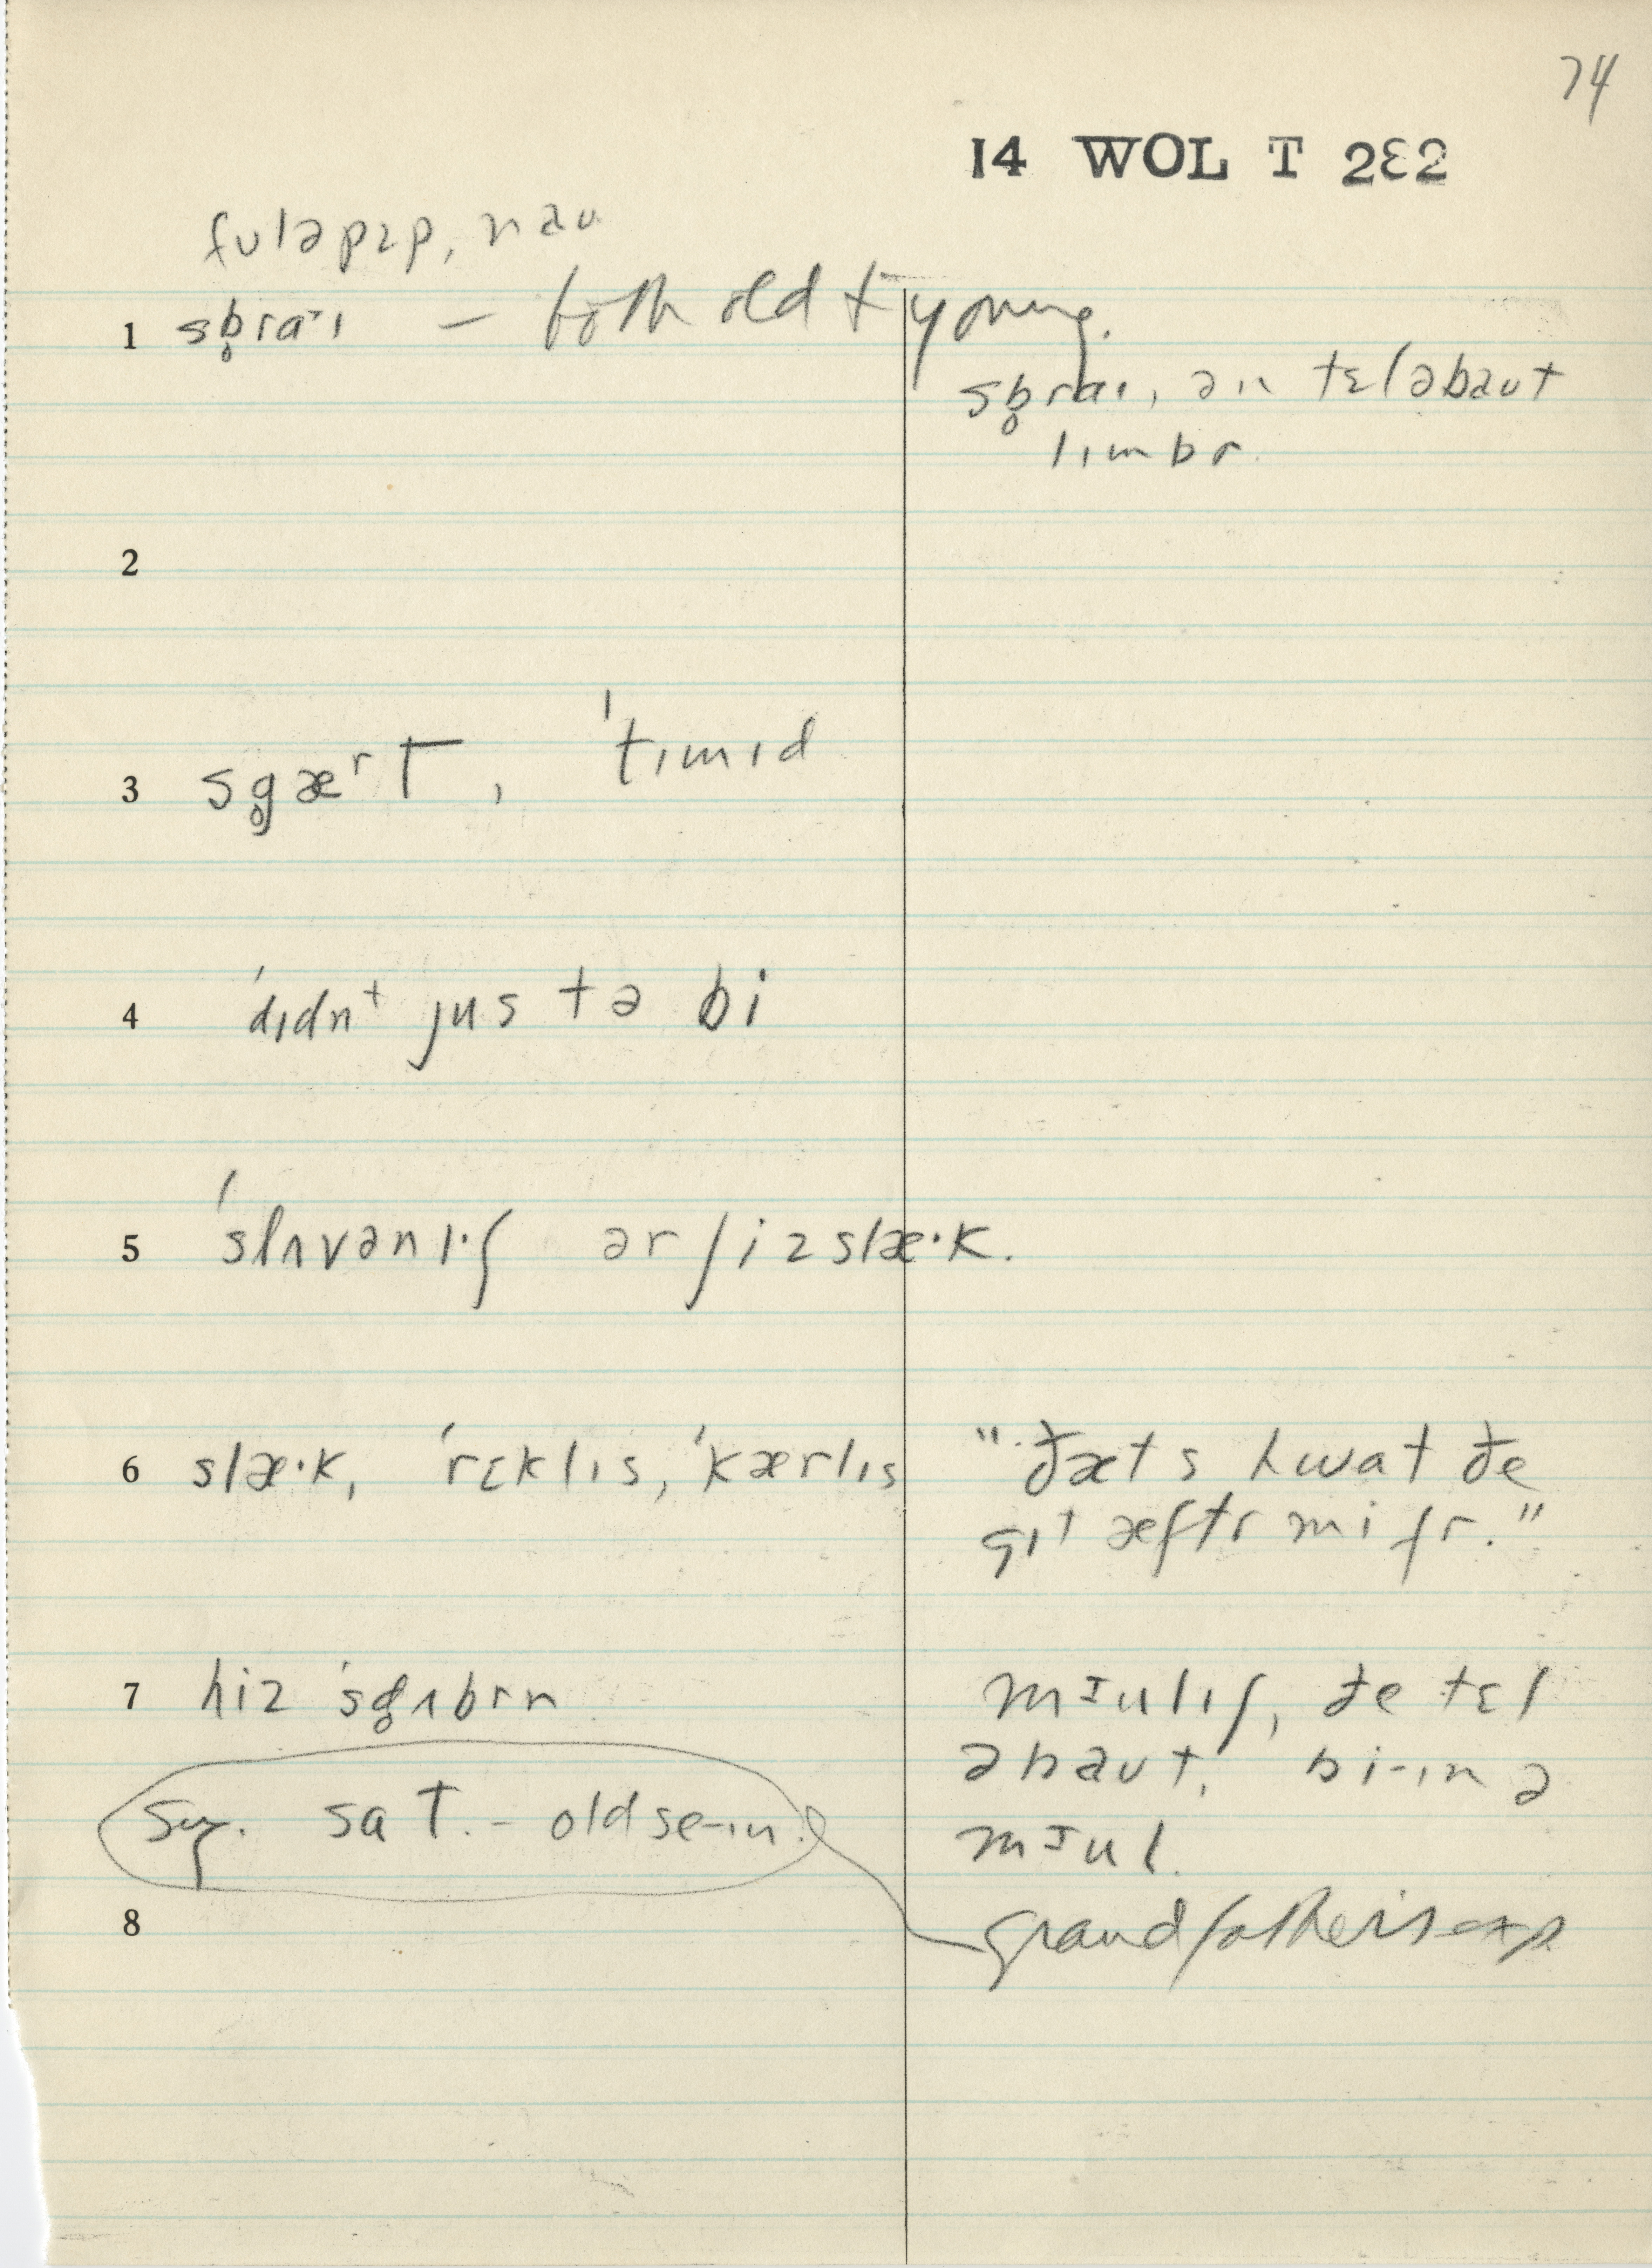 74
14 WOL T 282
fʊləpɛp, naʊ
1 sb̥ra·ɪ — both old & young.
sb̥raɪ, ən tɛləbaʊt
lɪmbr.
2
3 sg̥æʳt, ˈtɪmɪd
4 ˈdɪdnᵗ jus tə bi
5 ˈslʌvənɪ·ʃ ər ʃizslæ·k.
6 slæ·k, ˈrɛklɪs, ˈkærlɪs
"ðæts hwat ðe
gɪᵗ æftr mi fr."
7 hiz ˈsd̥ʌbrn
mɪulɪʃ, ðe tɛl
əbaʊt, bi-ɪn ə
mɪul.
sat. - old se-ɪn.
8
grandfather's exp